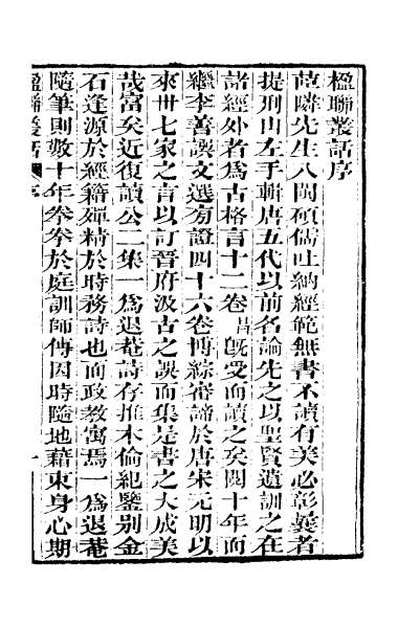 楹聯叢話序
茝隣先生八閩碩儒吐納經範無書不讀有美必彰曩者
提刑山左手輯唐五代以前名論先之以聖賢遺訓之在
諸經外者為古格言十二卷昌旣受而讀之矣閱十年而
繼李善譔文選旁證四十六卷博綜審諦於唐宋元明以
來丗七家之言以訂晉府汲古之誤而集是書之大成美
哉富矣近復讀公二集一為退菴詩存推本偷紀鑒别金
石逢源於經籍殫精於時務詩也而政教寓焉一為退菴
隨筆則數十年拳拳於庭訓師傳因時隨地藉束身心期
楹聯叢話 序 一